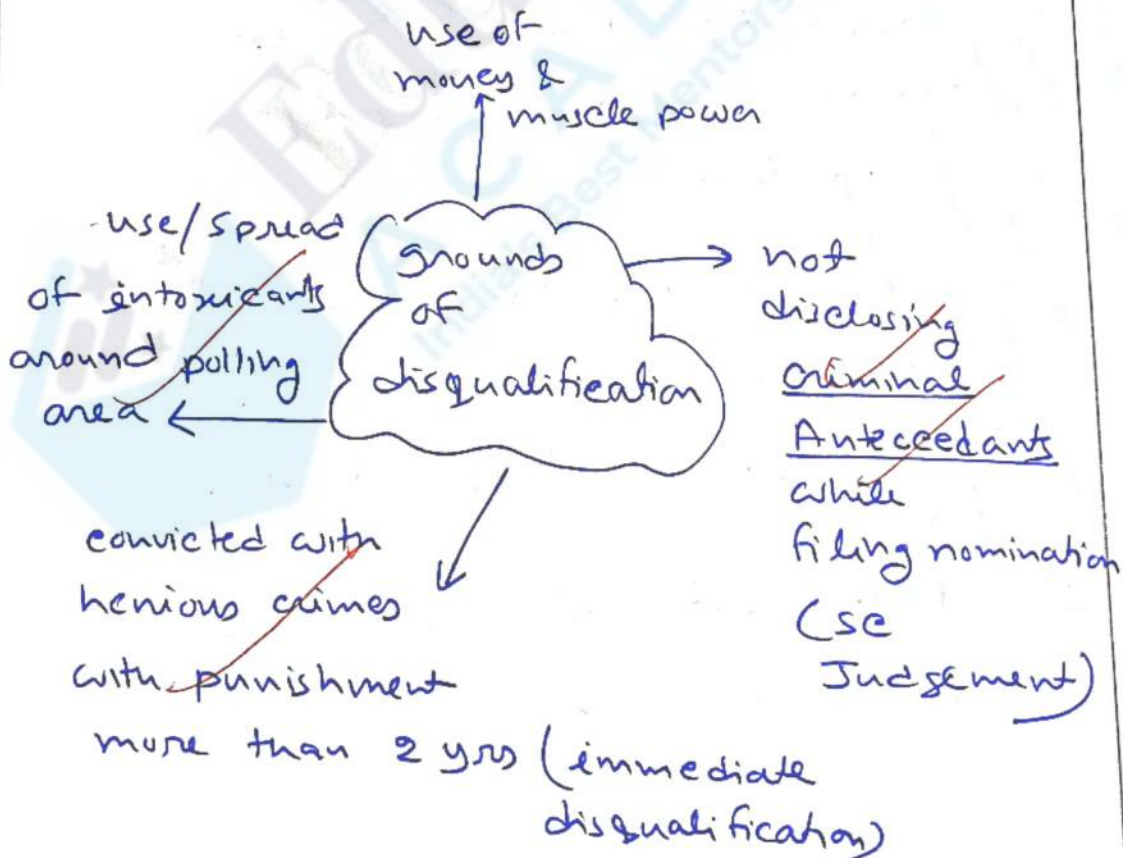 use of
money &
muscle power
use/spread
of intoxicants
around polling
area
grounds
of
disqualification
not
disclosing
criminal
Anteceedants
while
filing nomination
(SC
Judgement)
convicted with
henious crimes
with punishment
more than 2 yrs (immediate
disqualification)
Edu
ACAD
India's Best Mentors